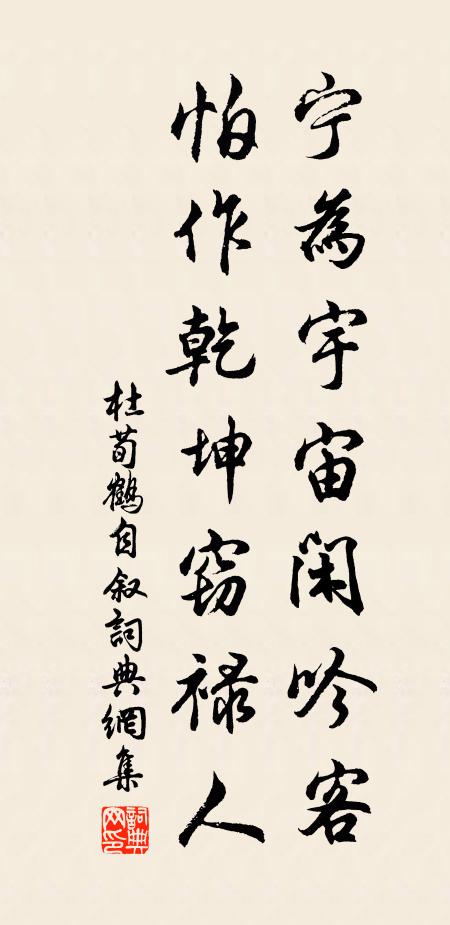 宁為宇宙閑吟客
怕作乾坤窃禄人
杜荀鶴自叙詞典網集
詞典网印